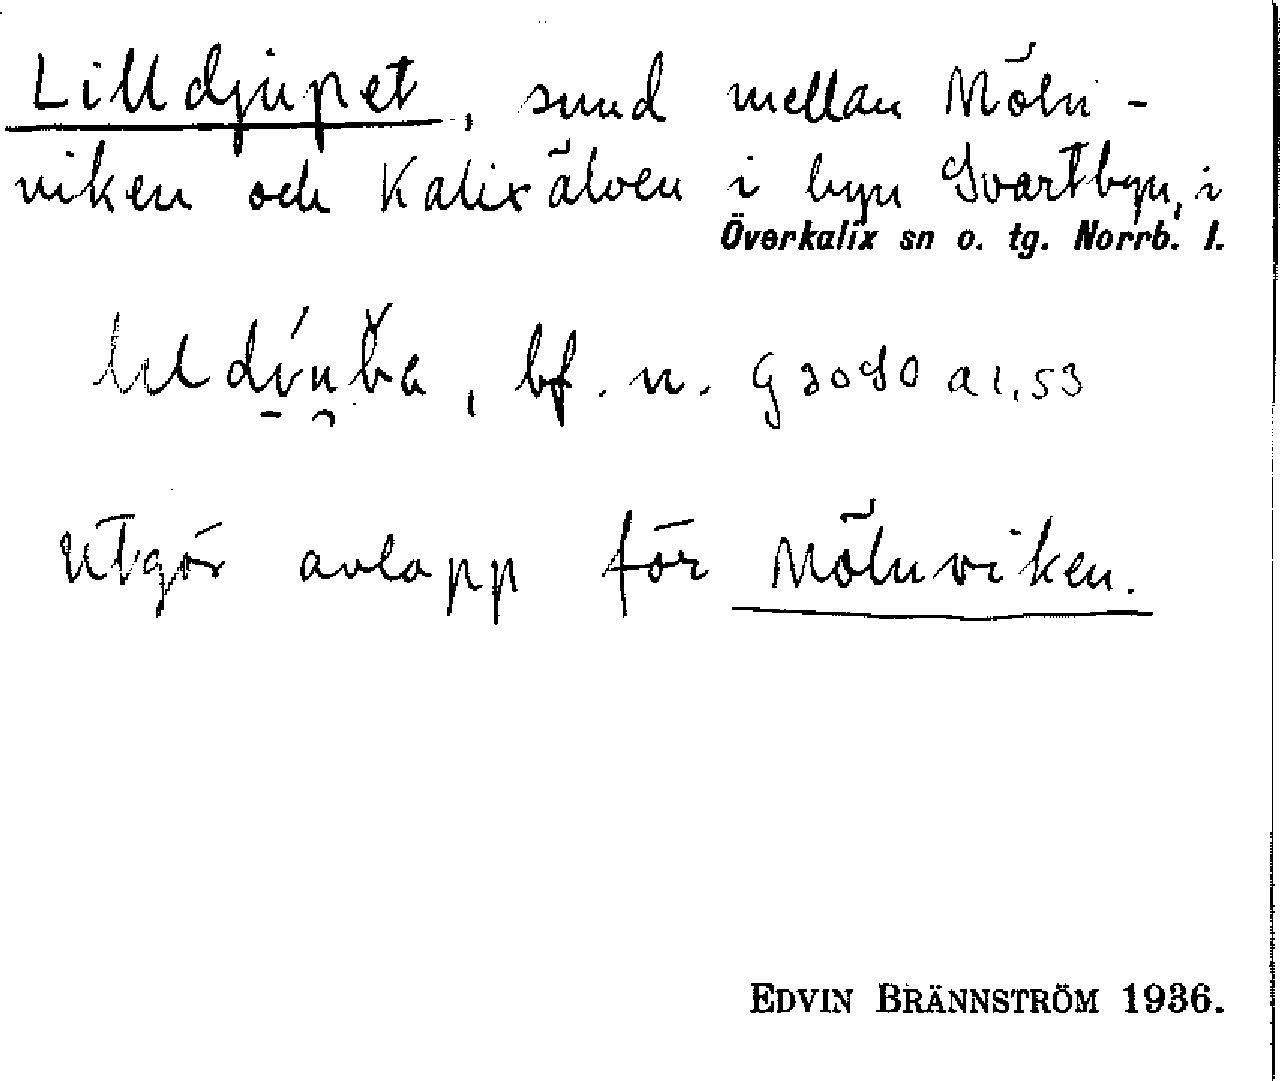 Lilldjupet, sund mellan Möln-
viken och Kalixälven i byn Svartbyn, i
Överkalix sn o. tg. Norrb. l.
bf. n.
Utgör avlopp för Mölnviken.
EDVIN BRÄNNSTRÖM 1936.